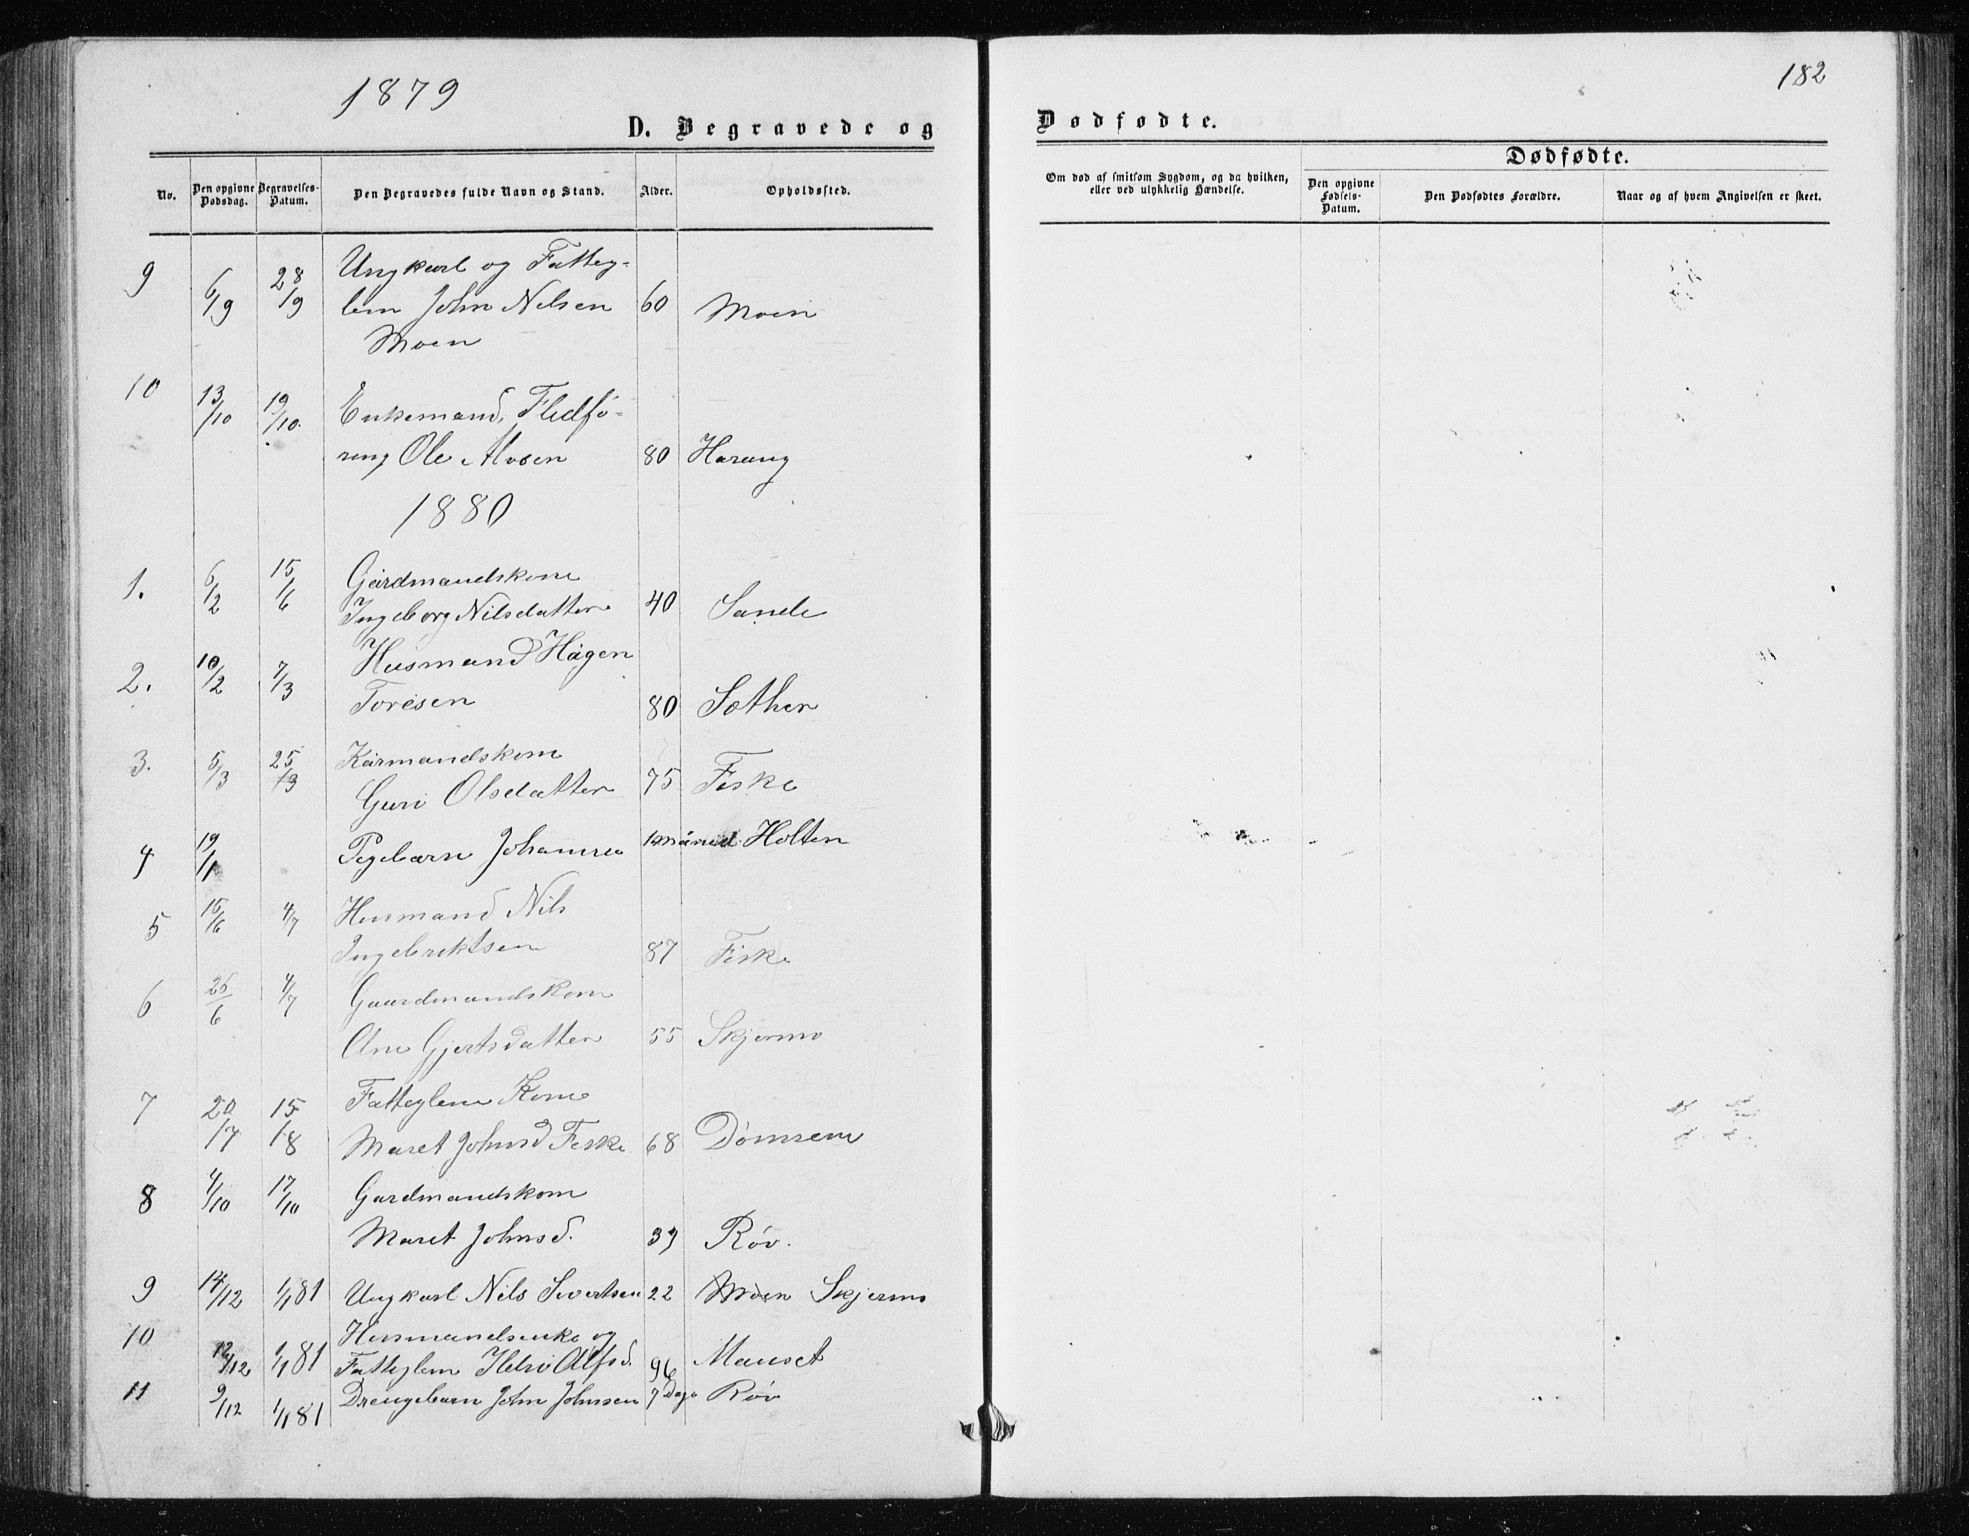 1879
182
D. Begravede og
Dødfødte.
No.
Den opgivne Dødsdag.
Begravelses-Datum.
Den Begravedes fulde Navn og Stand.
Alder.
Opholdssted.
Om død af smitsom Sygdom, og da hvilken, eller ved ulykkelig Hændelse.
Dødfødte.
Den opgivne Fødsels-Datum.
Den Dødfødtes Forældre.
Naar og af hvem Angivelsen er skeet.
9 6/9 28/9 Ungkarl og Fatteg-
lem John Nilsen 60 Moen
Moen
10 13/10 19/10. Enkemand, Fledfø-
ring Ole 80 Harang
1880
1. 6/2 15/6 Gårdmandskone
Ingeborg Nilsdatter 40 Sande
2. 10/2 7/3 Husmand Hågen
Toresen 80 Sæther
3. 5/3 25/3 Kårmandskone
Guri Olsdatter 75 Feske
4 19/1 Pigebarn 1 måned Holten
5 15/6 4/7 Husmand Nils
Ingebriktsen 87 Fiske
6 26/6 4/7 Gaardmandskone
Ane Gjertsdatter 55 Skjermo
7 20/7 15/8 Fatteglem Kone
Maret Johnsd Feske 68 Dømsem
8 4/10 17/10 Gardmandskone
Maret Johnsd. Røv.
9 14/12 1/1 81 Ungkarl Nils Sivertsen 22 Moen Skjermo
10 12/12 1/1 81 Husmandsenke og
Fatteglem Alfsd. 96 Mauset
11 9/12 1/1 81 Drengebarn John Johnsen 7 Dage Røv